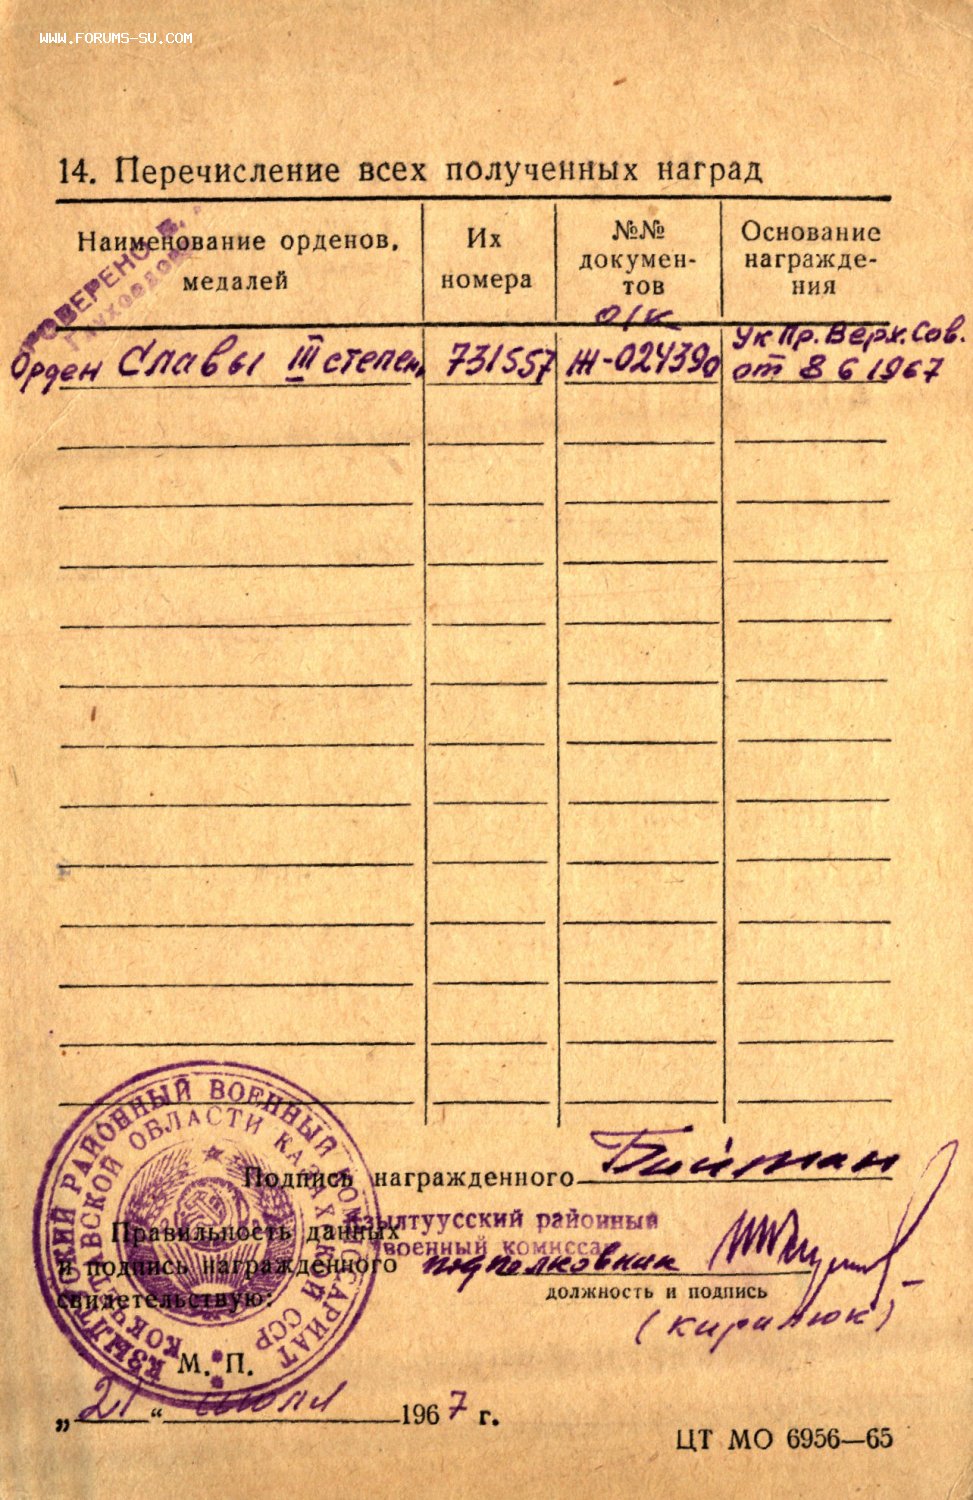 WWW.FORUMS-SU.COM
14. Перечисление всех полученных наград
Наименование орденов, медалей
Их номера
№№ докумен-
тов
Основание
награжде-
ния
ПРОВЕРЕНО
о/к
Орден Славы III степени
731557
Ж-024390
Ук Пр. Верх. Сов.
от 8 6 1967
КЗЫЛТУССКИЙ РАЙОННЫЙ ВОЕННЫЙ КОМИССАРИАТ
КОКЧЕТАВСКОЙ ОБЛАСТИ КАЗАХСКОЙ ССР
Подпись награжденного
Правильность данных
и подпись награжденного
свидетельствую:
Кзылтуусский районный
военный комиссар
подполковник
должность и подпись
(Кирилюк)
М. П.
„21“ июля 1967 г.
ЦТ МО 6956—65